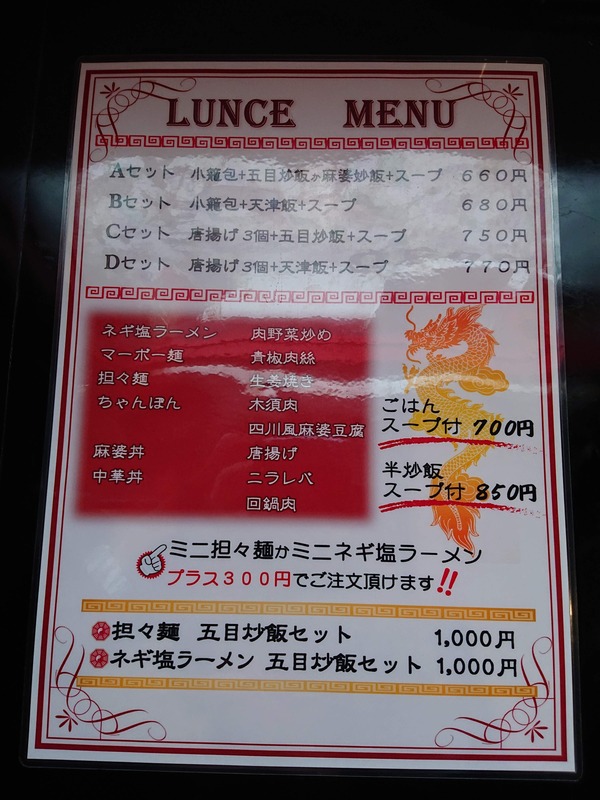 LUNCE MENU
Aセット 小籠包+五目炒飯か麻婆炒飯+スープ 660円
Bセット 小籠包+天津飯+スープ 680円
Cセット 唐揚げ3個+五目炒飯+スープ 750円
Dセット 唐揚げ3個+天津飯+スープ 770円
ネギ塩ラーメン
マーボー麺
担々麺
ちゃんぽん
麻婆丼
中華丼
肉野菜炒め
青椒肉絲
生姜焼き
木須肉
四川風麻婆豆腐
唐揚げ
ニラレバ
回鍋肉
ごはん
スープ付 700円
半炒飯
スープ付 850円
ミニ担々麺かミニネギ塩ラーメン
プラス300円でご注文頂けます!!
担々麺 五目炒飯セット 1,000円
ネギ塩ラーメン 五目炒飯セット 1,000円